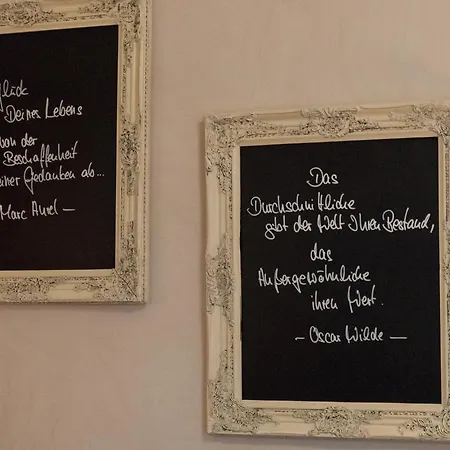 Glück
Deines Lebens
von der
Beschaffenheit
Deiner Gedanken ab...
Marc Aurel —
Das
Durchschnittliche
gibt der Welt Ihren Bestand,
das
Außergewöhnliche
ihren Wert.
— Oscar Wilde —